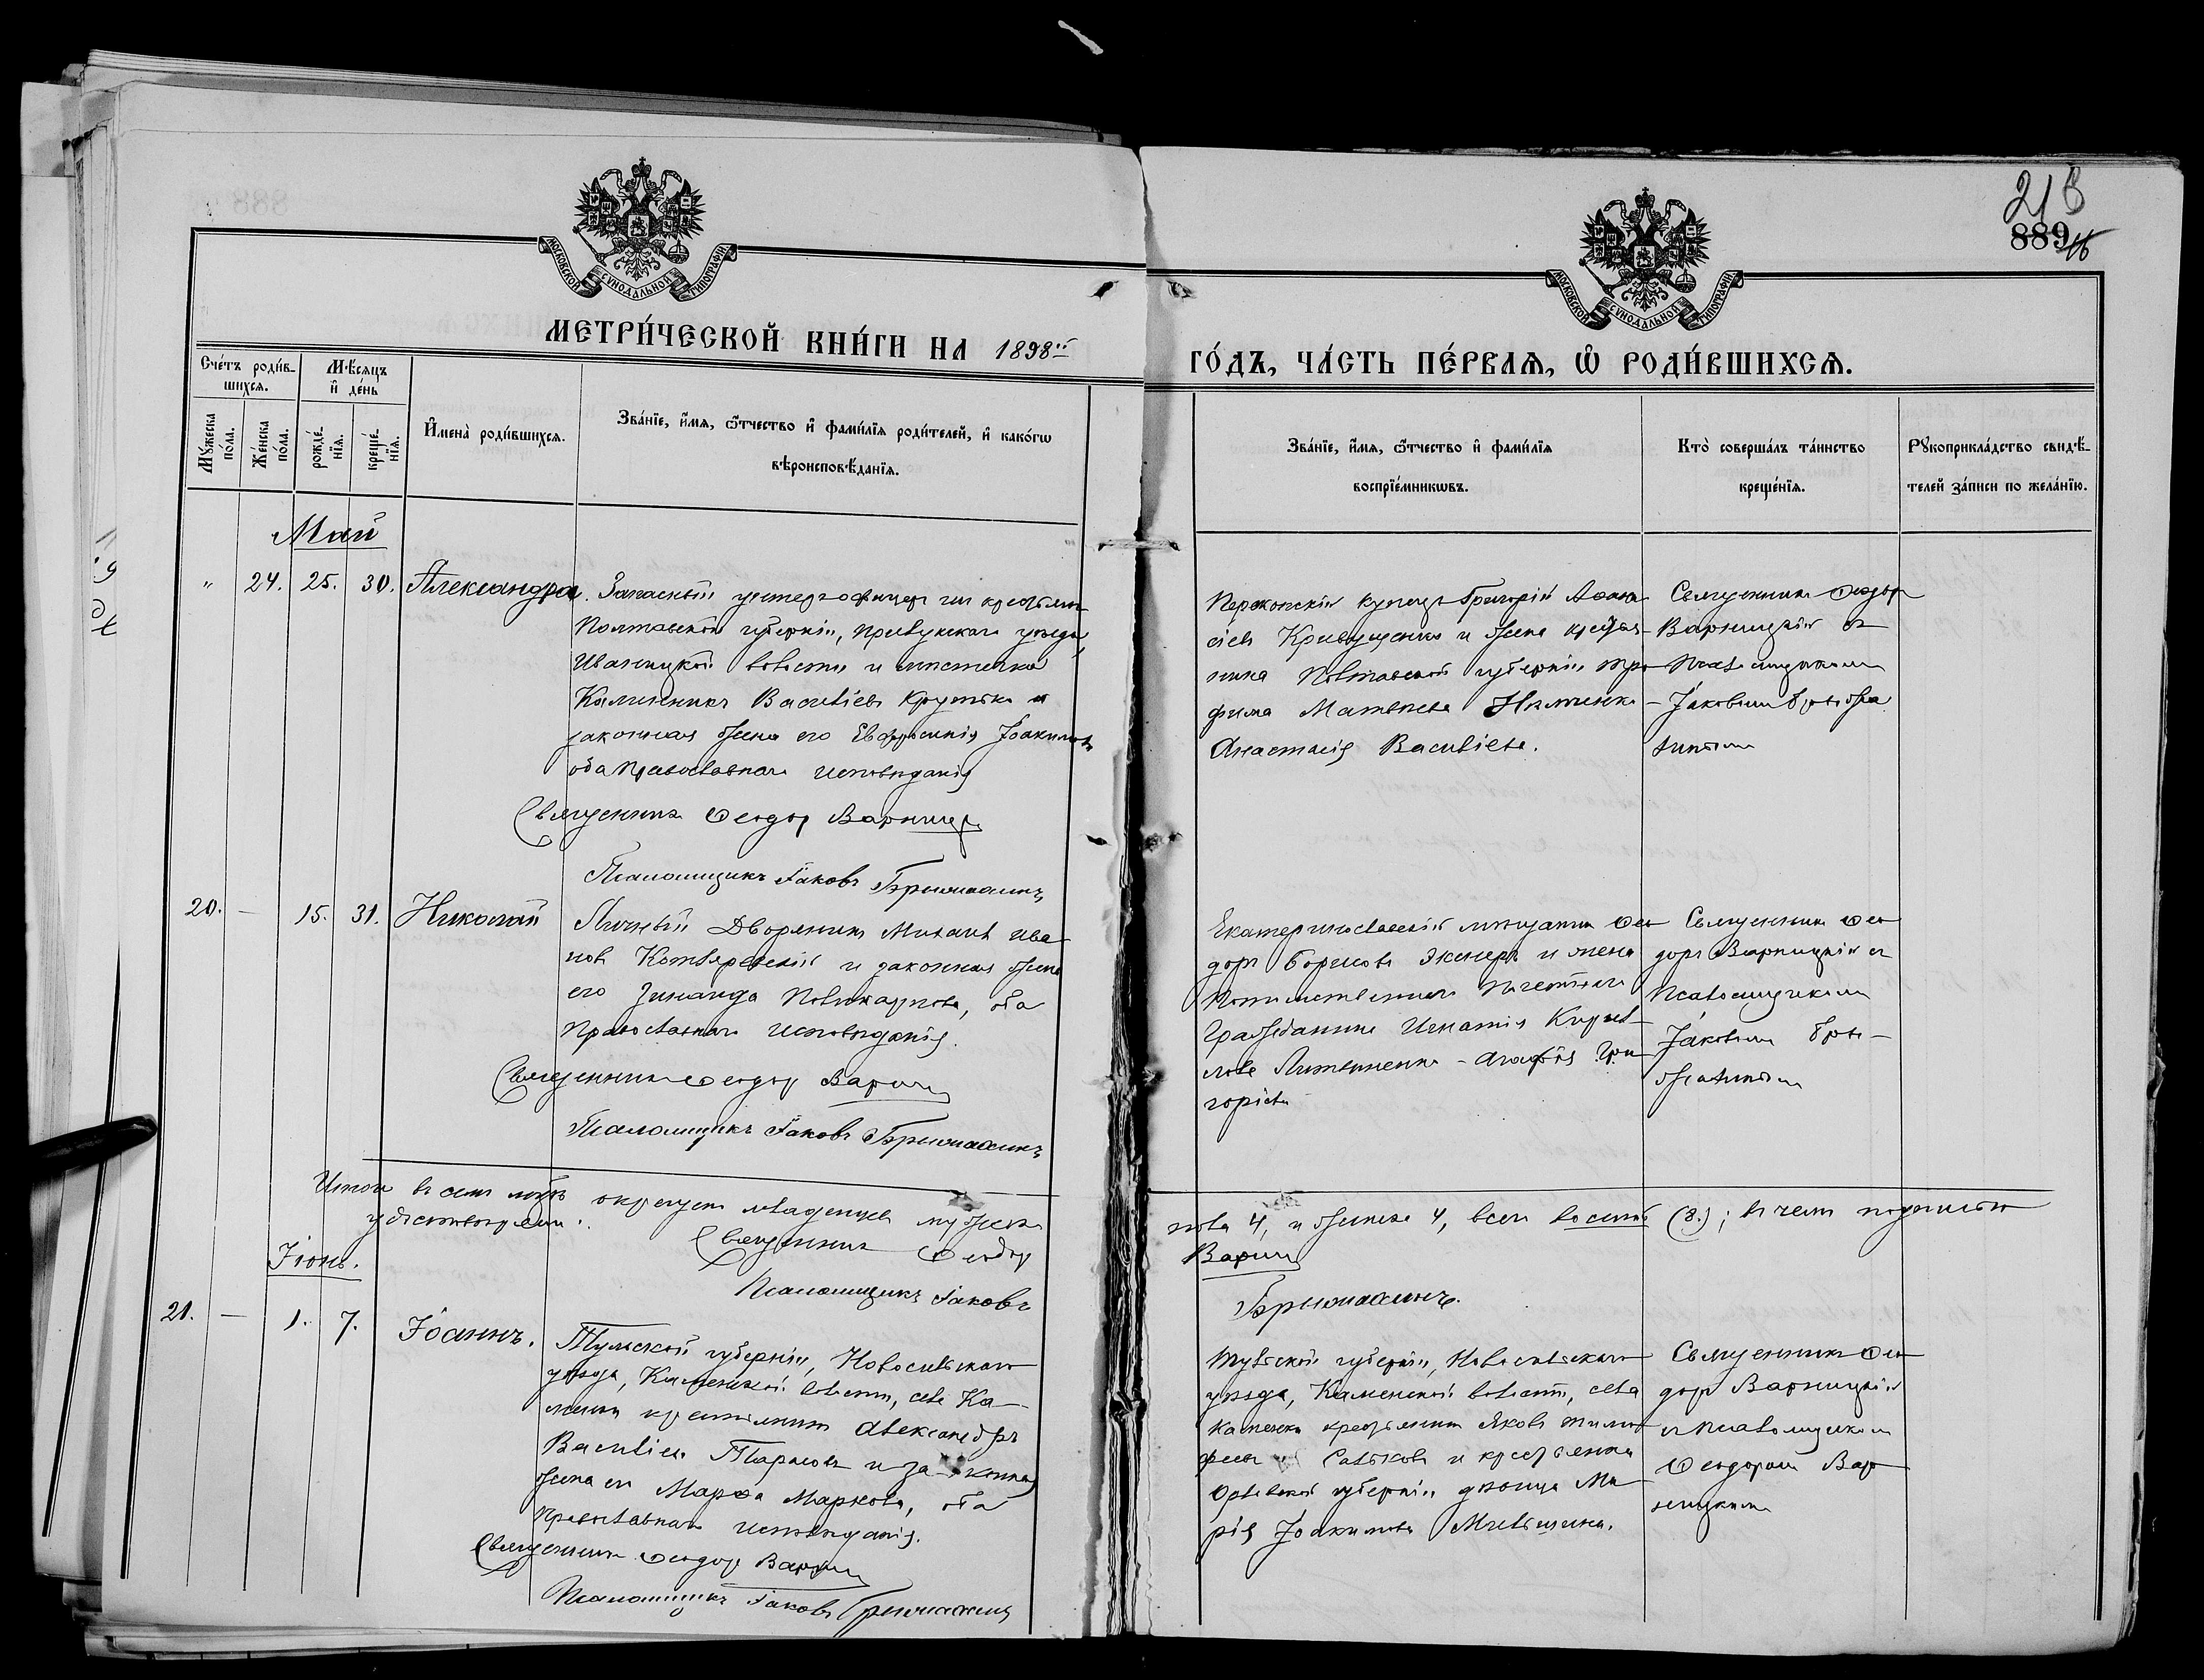 218
889
МОСКОВСКОЙ СѴНОДАЛЬНОЙ ТИПОГРАФІИ
МОСКОВСКОЙ СѴНОДАЛЬНОЙ ТИПОГРАФІИ
МЕТРИ́ЧЕСКОЙ КНИ́ГИ НА 1898й
ГО́ДЪ, ЧА́СТЬ ПЕ́РВАѦ, Ѡ҆ РОДИ́ВШИХСѦ.
Сче́тъ роди́в-
шихся.
Мꙋ́жеска
по́ла.
Же́нска
по́ла.
Мѣ́сяцъ
и҆ де́нь
рожде́-
нїя.
креще́-
нїя.
И҆мена̀ роди́вшихся.
Зва́нїе, и҆́мя, ѻ҆́тчество и҆ фами́лїя роди́телей, и҆ како́гѡ
вѣроисповѣ́данїя.
Зва́нїе, и҆́мя, ѻ҆́тчество и҆ фами́лїя
воспрїе́мникѡвъ.
Кто̀ соверша́лъ та́инство
креще́нїя.
Рꙋкоприкла́дство свидѣ́-
телей за́писи по жела́нїю.
Май
" 24. 25. 30. Александра.
Запасный унтеръ-офицеръ изъ крестьянъ
Полтавской губерніи, Прилукскаго уѣзда,
Иваницкой волости и мѣстечка
Калинникъ Василіевъ Крутько и
законная жена его Евфросинія Іоакимова
оба православнаго исповѣданія
Священникъ Ѳеодоръ Варницк
Псаломщикъ Іаковъ Брыжахинъ
Перекопскій купецъ Григорій Аѳана
сіевъ Кривущенко и жена крестья-
нина Полтавской губерніи Тро
фима Матвѣева
Анастасія Василіева.
Священникъ Ѳеодоръ
Варницкій съ
псаломщикомъ
Іаковомъ Брыжа
хинымъ
20. — 15. 31. Николай
Личный Дворянинъ Михаилъ Ива
новъ Котляревскій и законная жена
его Зинаида Поликарпова, оба
православнаго исповѣданія.
Священникъ Ѳеодоръ Варниц
Псаломщикъ Іаковъ Брыжахинъ
Екатеринославскій мѣщанинъ Ѳео
доръ Борисовъ и жена
потомственнаго почетнаго
гражданина Игнатія Кирил-
лова Литвиненко - Агафія Гри
горіева
Священникъ Ѳео
доръ Варницкій съ
псаломщикомъ
Іаковомъ Бры-
жахинымъ
Итого въ семъ окрещено младенцевъ мужеска
пола 4, и женска 4, всего восемь (8.); въ чемъ подписью
удостовѣряемъ. Священникъ Ѳеодоръ
Варниц
Псаломщикъ Іаковъ
Брыжахинъ.
Іюнь.
21. — 1. 7. Іоаннъ.
Тульской губерніи, Новосильскаго
уѣзда, Каменской волости, села Ка-
менки крестьянинъ Александръ
Василіевъ Тарасовъ и законная
жена его Марѳа Маркова, оба
православнаго исповѣданія.
Священникъ Ѳеодоръ Варниц
Псаломщикъ Іаковъ Брыжахинъ
Тульской губерніи, Новосильскаго
уѣзда, Каменской волости, села
Каменки крестьянинъ Яковъ Тимо
феевъ Сальковъ и крестьянка
Орловской губерніи дѣвица Ма
рія Іоакимова
Священникъ Ѳео
доръ Варницкій
съ псаломщикомъ
Ѳеодоромъ Вар
ницкимъ